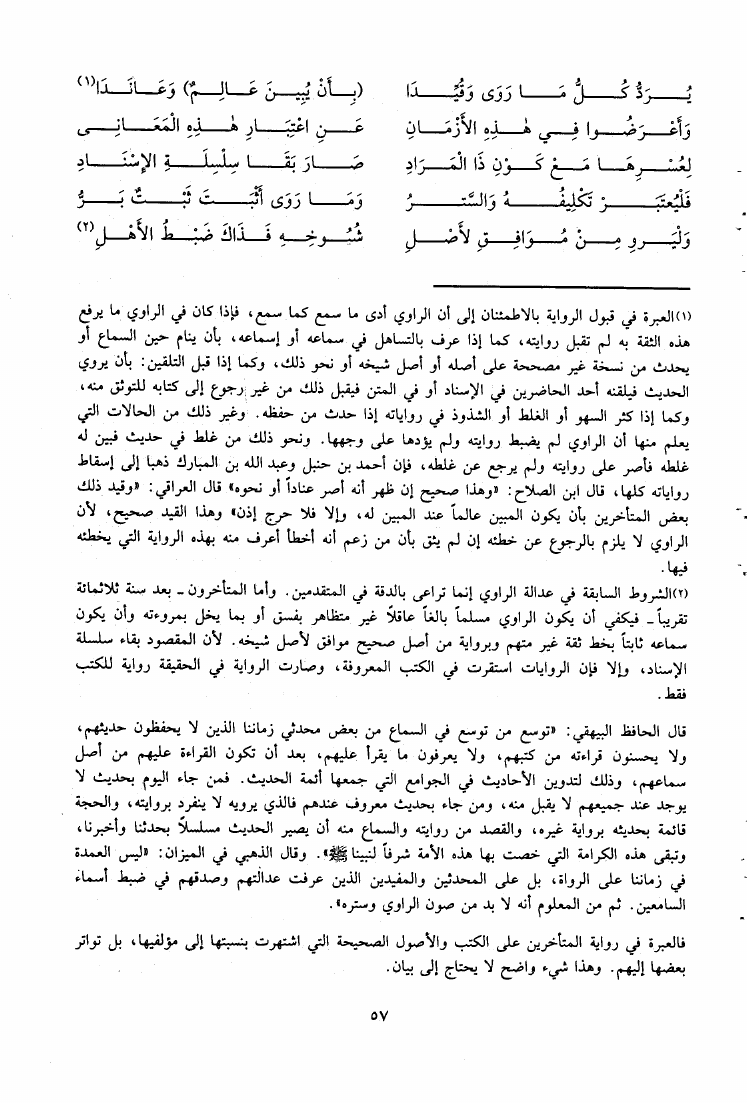 يُرَدُّ كُلُّ مَا رَوَى وَقُيِّدَا (بِأَنْ يُبِينَ عَالِمٌ) وَعَانَدَا(١)
وَأَعْرَضُوا فِي هٰذِهِ الأَزْمَانِ عَنِ اعْتِبَارِ هٰذِهِ الْمَعَانِي
لِعُسْرِهَا مَعْ كَوْنِ ذَا الْمُرَادِ صَارَ بَقَا سِلْسِلَةِ الإِسْنَادِ
فَلْيُعْتَبَرْ تَكْلِيفُهُ وَالسَّتْرُ وَمَا رَوَى أَثْبَتَ ثَبْتٌ بَرُّ
وَلْيَرْوِ مِنْ مُوَافِقٍ لأَصْلِ شُيُوخِهِ فَذَاكَ ضَبْطُ الأَهْلِ(٢)
(١) العبرة في قبول الرواية بالاطمئنان إلى أن الراوي أدى ما سمع كما سمع، فإذا كان في الراوي ما يرفع
هذه الثقة به لم تقبل روايته، كما إذا عرف بالتساهل في سماعه أو إسماعه، بأن ينام حين السماع أو
يحدث من نسخة غير مصححة على أصله أو أصل شيخه أو نحو ذلك، وكما إذا قبل التلقين: بأن يروي
الحديث فيلقنه أحد الحاضرين في الإسناد أو في المتن فيقبل ذلك من غير رجوع إلى كتابه للتوثق منه،
وكما إذا كثر السهو أو الغلط أو الشذوذ في رواياته إذا حدث من حفظه. وغير ذلك من الحالات التي
يعلم منها أن الراوي لم يضبط روايته ولم يؤدها على وجهها. ونحو ذلك من غلط في حديث فبين له
غلطه فأصر على روايته ولم يرجع عن غلطه، فإن أحمد بن حنبل وعبد الله بن المبارك ذهبا إلى إسقاط
رواياته كلها، قال ابن الصلاح: «وهذا صحيح إن ظهر أنه أصر عناداً أو نحوه» قال العراقي: «وقيد ذلك
بعض المتأخرين بأن يكون المبين عالماً عند المبين له، وإلا فلا حرج إذن» وهذا القيد صحيح، لأن
الراوي لا يلزم بالرجوع عن خطئه إن لم يثق بأن من زعم أنه أخطأ أعرف منه بهذه الرواية التي يخطئه
فيها.
(٢) الشروط السابقة في عدالة الراوي إنما تراعى بالدقة في المتقدمين. وأما المتأخرون - بعد سنة ثلاثمائة
تقريباً - فيكفي أن يكون الراوي مسلماً بالغاً عاقلاً غير متظاهر بفسق أو بما يخل بمروءته وأن يكون
سماعه ثابتاً بخط ثقة غير متهم وبرواية من أصل صحيح موافق لأصل شيخه. لأن المقصود بقاء سلسلة
الإسناد، وإلا فإن الروايات استقرت في الكتب المعروفة، وصارت الرواية في الحقيقة رواية للكتب
فقط.
قال الحافظ البيهقي: «توسع من توسع في السماع من بعض محدثي زماننا الذين لا يحفظون حديثهم،
ولا يحسنون قراءته من كتبهم، ولا يعرفون ما يقرأ عليهم، بعد أن تكون القراءة عليهم من أصل
سماعهم، وذلك لتدوين الأحاديث في الجوامع التي جمعها أئمة الحديث. فمن جاء اليوم بحديث لا
يوجد عند جميعهم لا يقبل منه، ومن جاء بحديث معروف عندهم فالذي يرويه لا ينفرد بروايته، والحجة
قائمة بحديثه برواية غيره، والقصد من روايته والسماع منه أن يصير الحديث مسلسلاً بحدثنا وأخبرنا،
وتبقى هذه الكرامة التي خصت بها هذه الأمة شرفاً لنبينا ﷺ». وقال الذهبي في الميزان: «ليس العمدة
في زماننا على الرواة، بل على المحدثين والمفيدين الذين عرفت عدالتهم وصدقهم في ضبط أسماء
السامعين. ثم من المعلوم أنه لا بد من صون الراوي وستره».
فالعبرة في رواية المتأخرين على الكتب والأصول الصحيحة التي اشتهرت بنسبتها إلى مؤلفيها، بل تواتر
بعضها إليهم. وهذا شيء واضح لا يحتاج إلى بيان.
٥٧